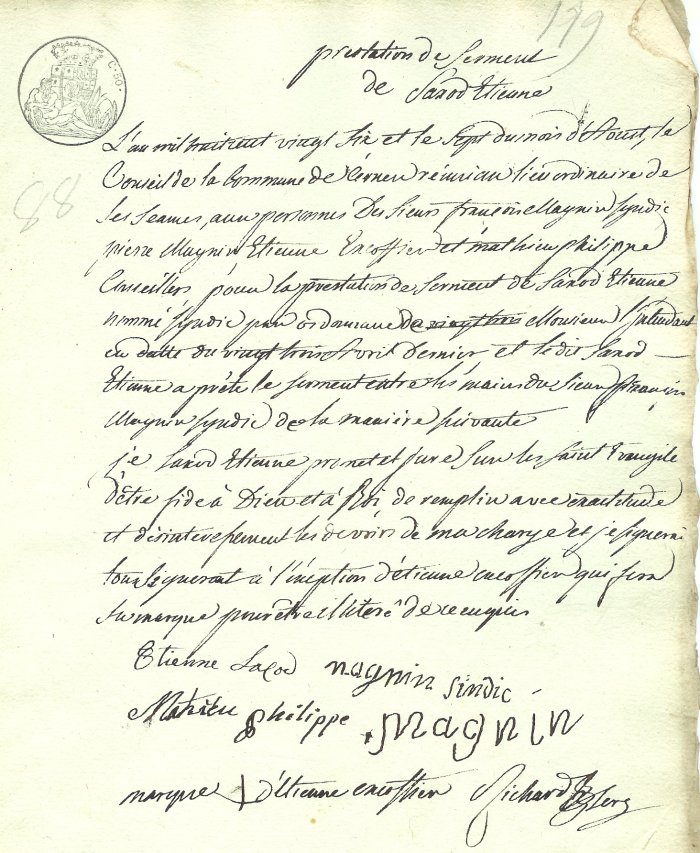 179
prestation de Serment
de Saxod Etienne
C. 50.
88
L'an mil huitcent vingt six et le Sept du mois d'Aoust, le
Conseil de la Commune de Cerneu réuni au lieu ordinaire de
Ses Seames, aux personnes Des Sieurs françois Magnin Syndic
pierre Magnin Etienne Encossier et mathieu philippe
Conseillers pour la prestation de Serment de Saxod Etienne
nommé Syndic par ordonnance de vingt trois Monsieur l'intendant
en datte du vingt trois Avril Dernier et ledit Saxod
Etienne a prété le serment entre les mains du Sieur françois
Magnin Syndic de la maniére suivante
je Saxod Etienne promet et jure Sur les Saint Evangile
d'être fide à Dieu et à Roi de remplir avec exactitude
et désinterepement les devoirs de ma charge et je signerai
tous Signeront à l'éxeption d'étienne encossier qui fera
Sa marque pour être illiteré de ce enquis
Etienne Saxod magnin sindic
Mathieu philippe magnin
marque d'étienne encossier Richard